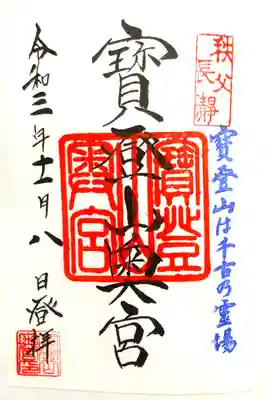 秩父
長瀞
寶登山は千古の霊場
寶登山奥宮
寶登山
奥宮
令和三年十一月八日登拝